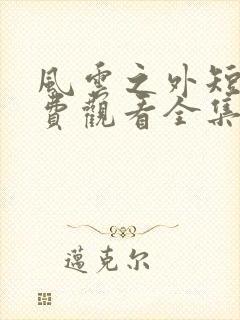 風雲之外短
費觀看全集
邁克尔